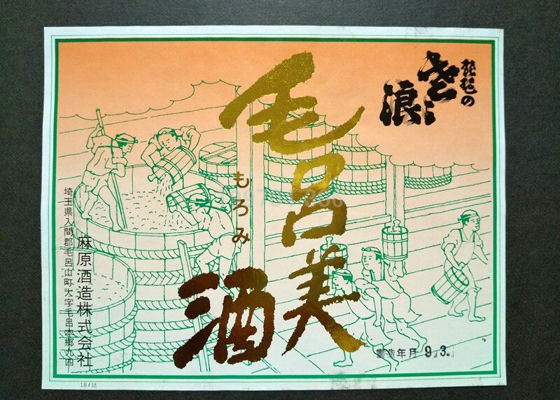 琵琶の
さゝ浪
毛呂美
もろみ
酒
麻原酒造株式会社
埼玉県入間郡毛呂山町大字毛呂本郷九四
製造年月 9.3.